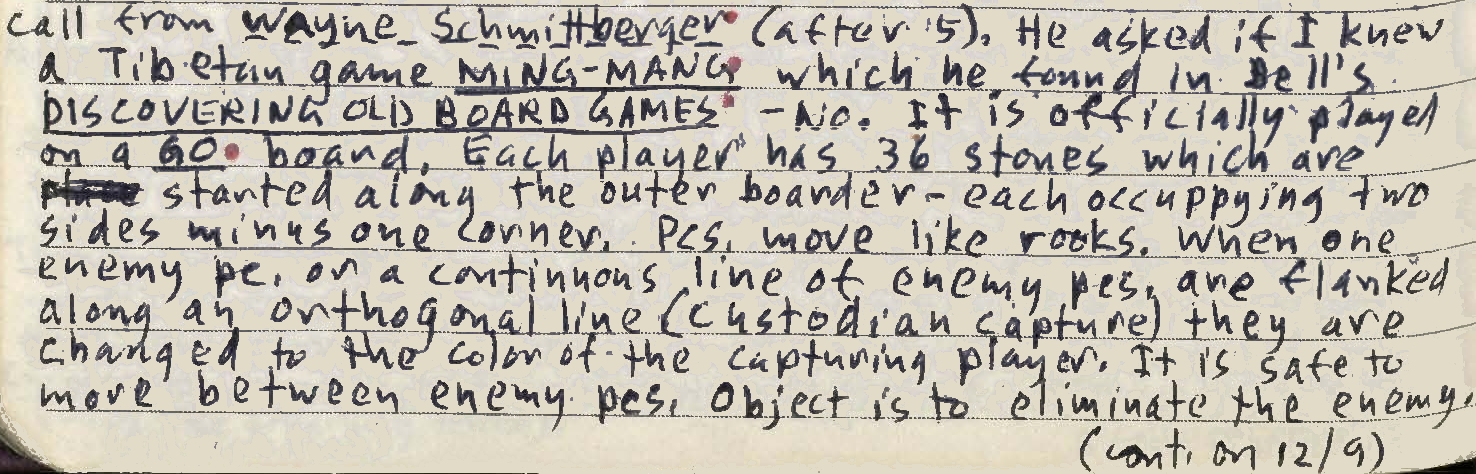 call from Wayne Schmittberger (after 5). He asked if I knew
a Tibetan game MING-MANG which he found in Bell's
DISCOVERING OLD BOARD GAMES - No. It is officially played
on a GO board. Each player has 36 stones which are
started along the outer boarder - each occuppying two
sides minus one corner. Pcs. move like rooks. When one
enemy pc. or a continuous line of enemy pcs. are flanked
along an orthogonal line (custodian capture) they are
changed to the color of the capturing player. It is safe to
move between enemy pcs. Object is to eliminate the enemy.
(cont. on 12/9)